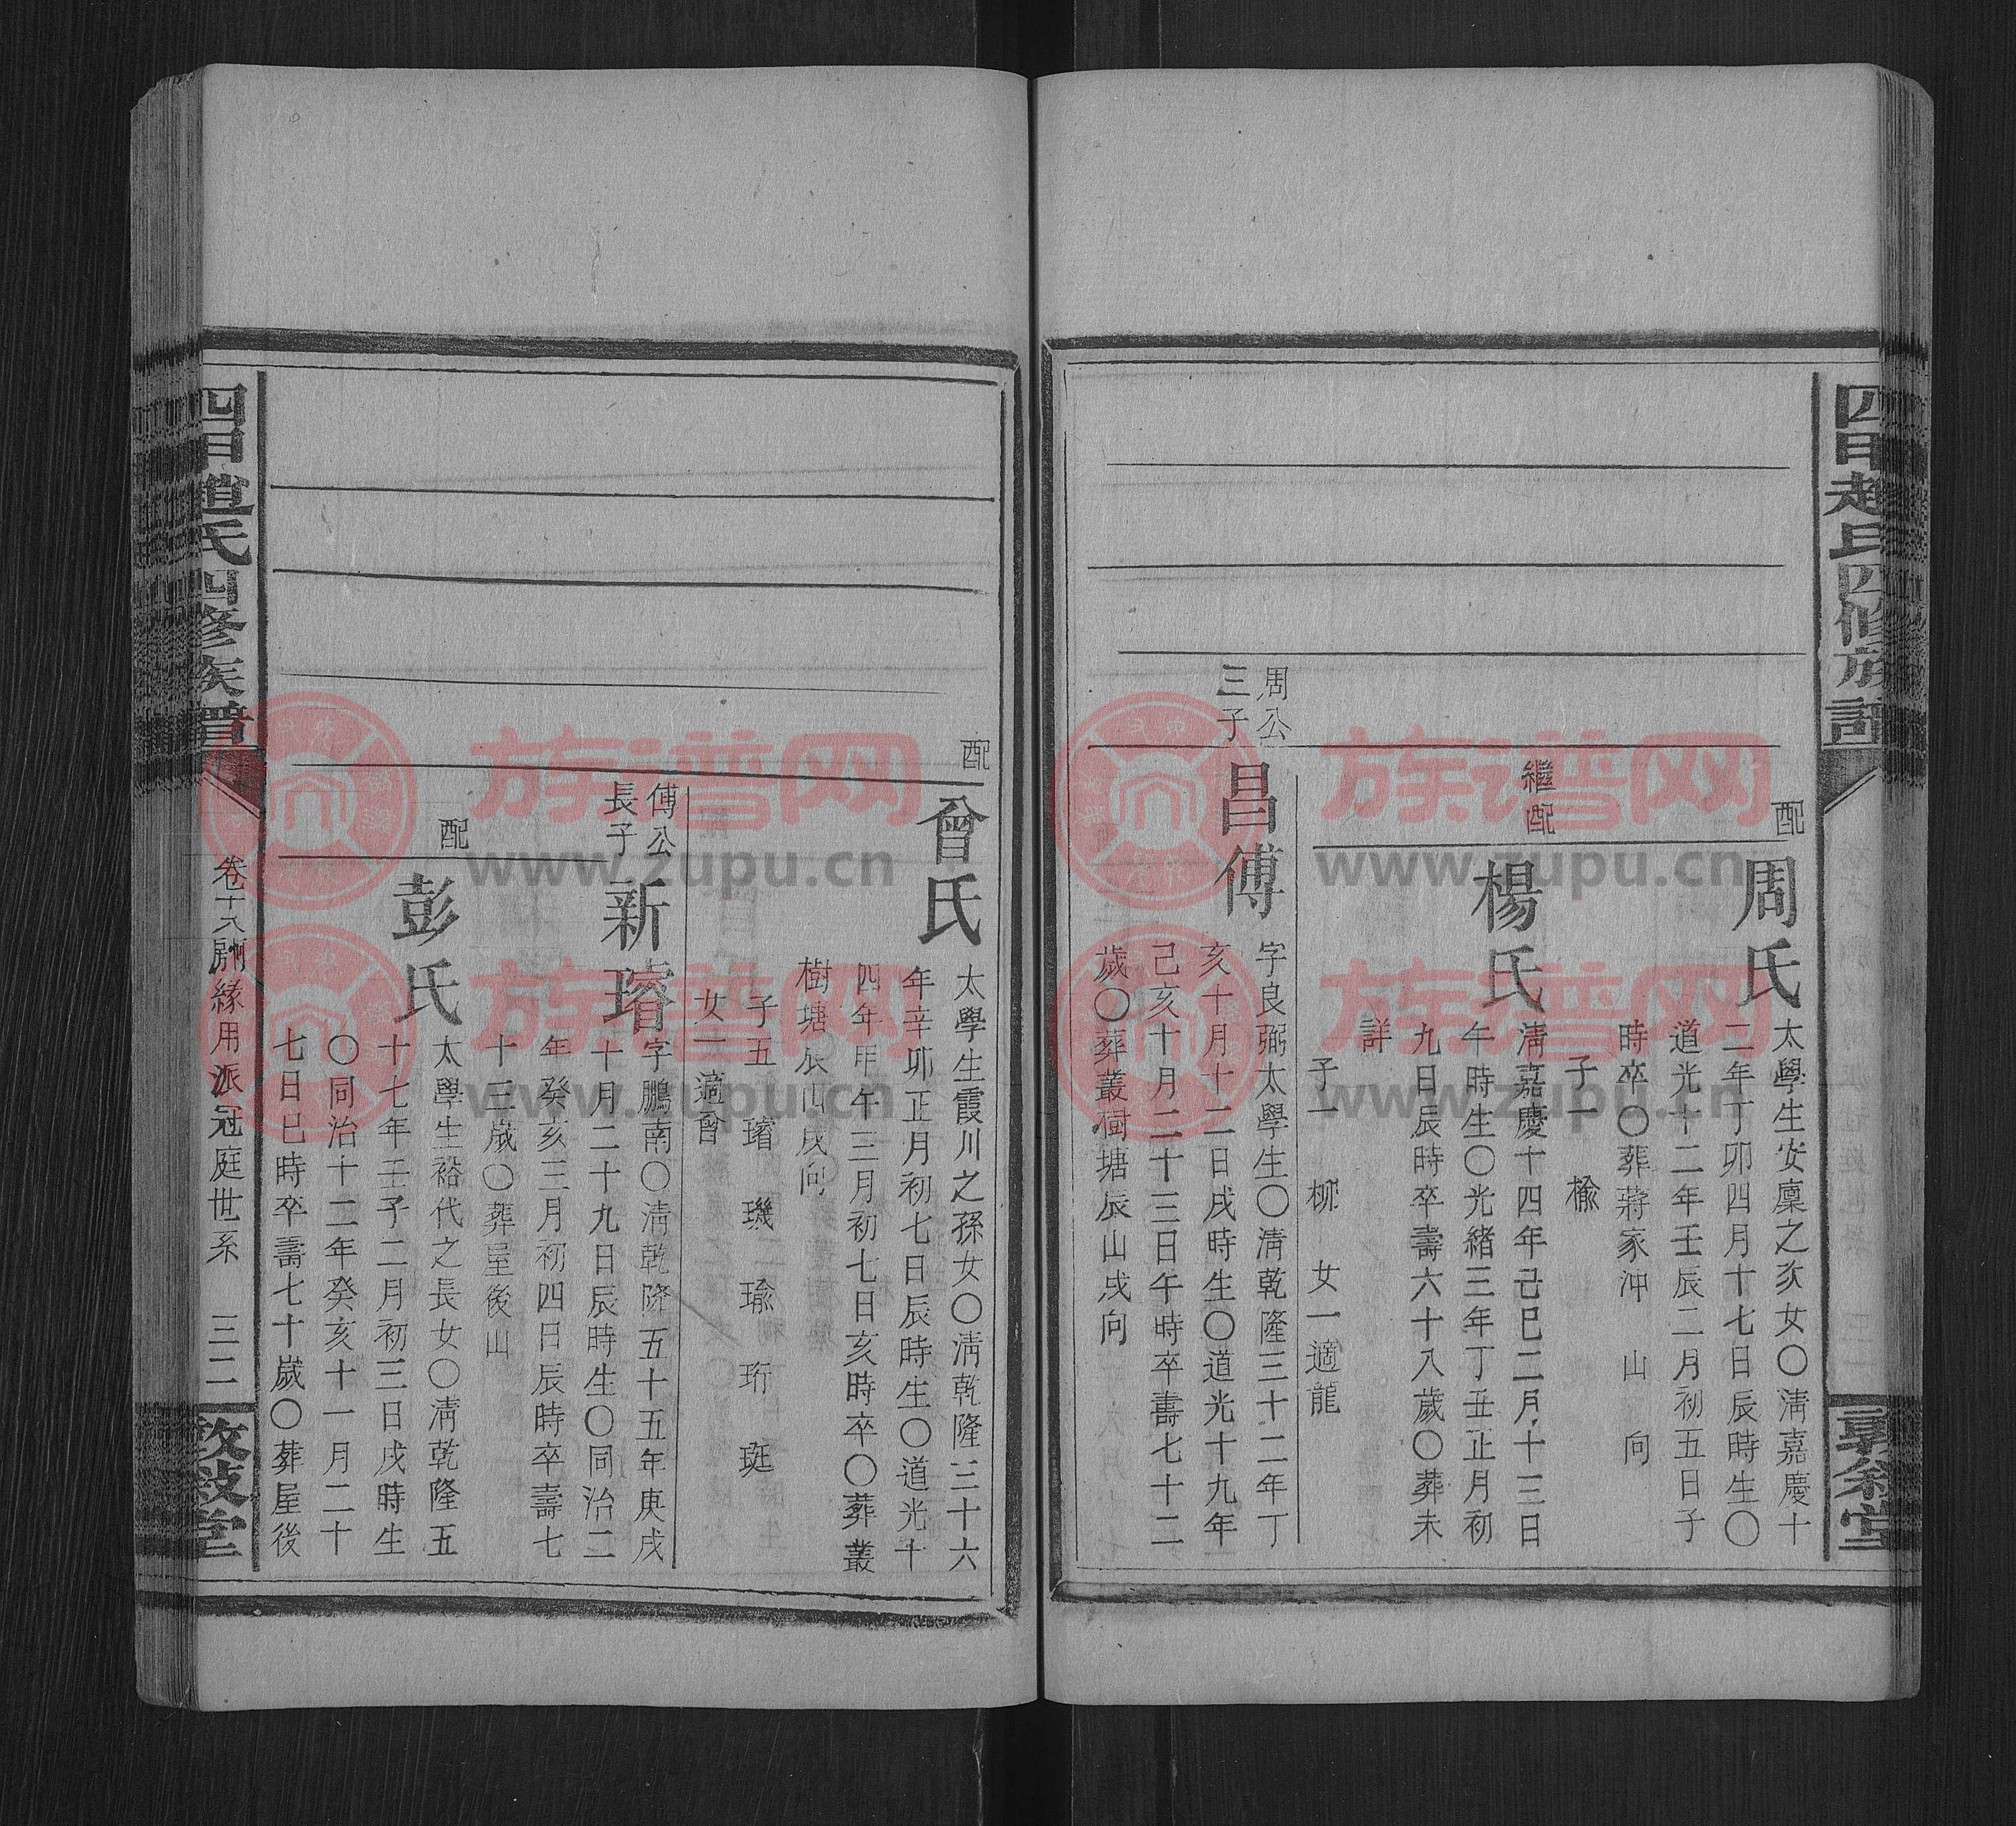 四甲趙氏四修族譜
敦敍堂
配
周氏
太學生安廩之次女〇淸嘉慶十
二年丁卯四月十七日辰時生〇
道光十二年壬辰二月初五日子
時卒〇葬蔣家沖 山 向
子一 楡
繼配
楊氏
淸嘉慶十四年己巳二月十三日
午時生〇光緖三年丁丑正月初
九日辰時卒壽六十八歲〇葬未
詳
子一 柳 女一適龍
周公
三子
昌傅
字良弼太學生〇淸乾隆三十二年丁
亥十月十二日戌時生〇道光十九年
己亥十月二十三日午時卒壽七十二
歲〇葬叢樹塘辰山戌向
配
曾氏
太學生霞川之孫女〇淸乾隆三十六
年辛卯正月初七日辰時生〇道光十
四年甲午三月初七日亥時卒〇葬叢
樹塘辰山戌向
子五 璿 璣 瑜 珩 珽
女一適曾
傅公
長子
新璿
字鵬南〇淸乾隆五十五年庚戌
十月二十九日辰時生〇同治二
年癸亥三月初四日辰時卒壽七
十三歲〇葬屋後山
配
彭氏
太學生裕代之長女〇淸乾隆五
十七年壬子二月初三日戌時生
〇同治十二年癸亥十一月二十
七日巳時卒壽七十歲〇葬屋後
四甲趙氏四修族譜
卷十八嗣緣用派冠庭世系 三二
敦敍堂
族谱网
www.zupu.cn
族谱网
www.zupu.cn
族谱网
www.zupu.cn
族谱网
www.zupu.cn